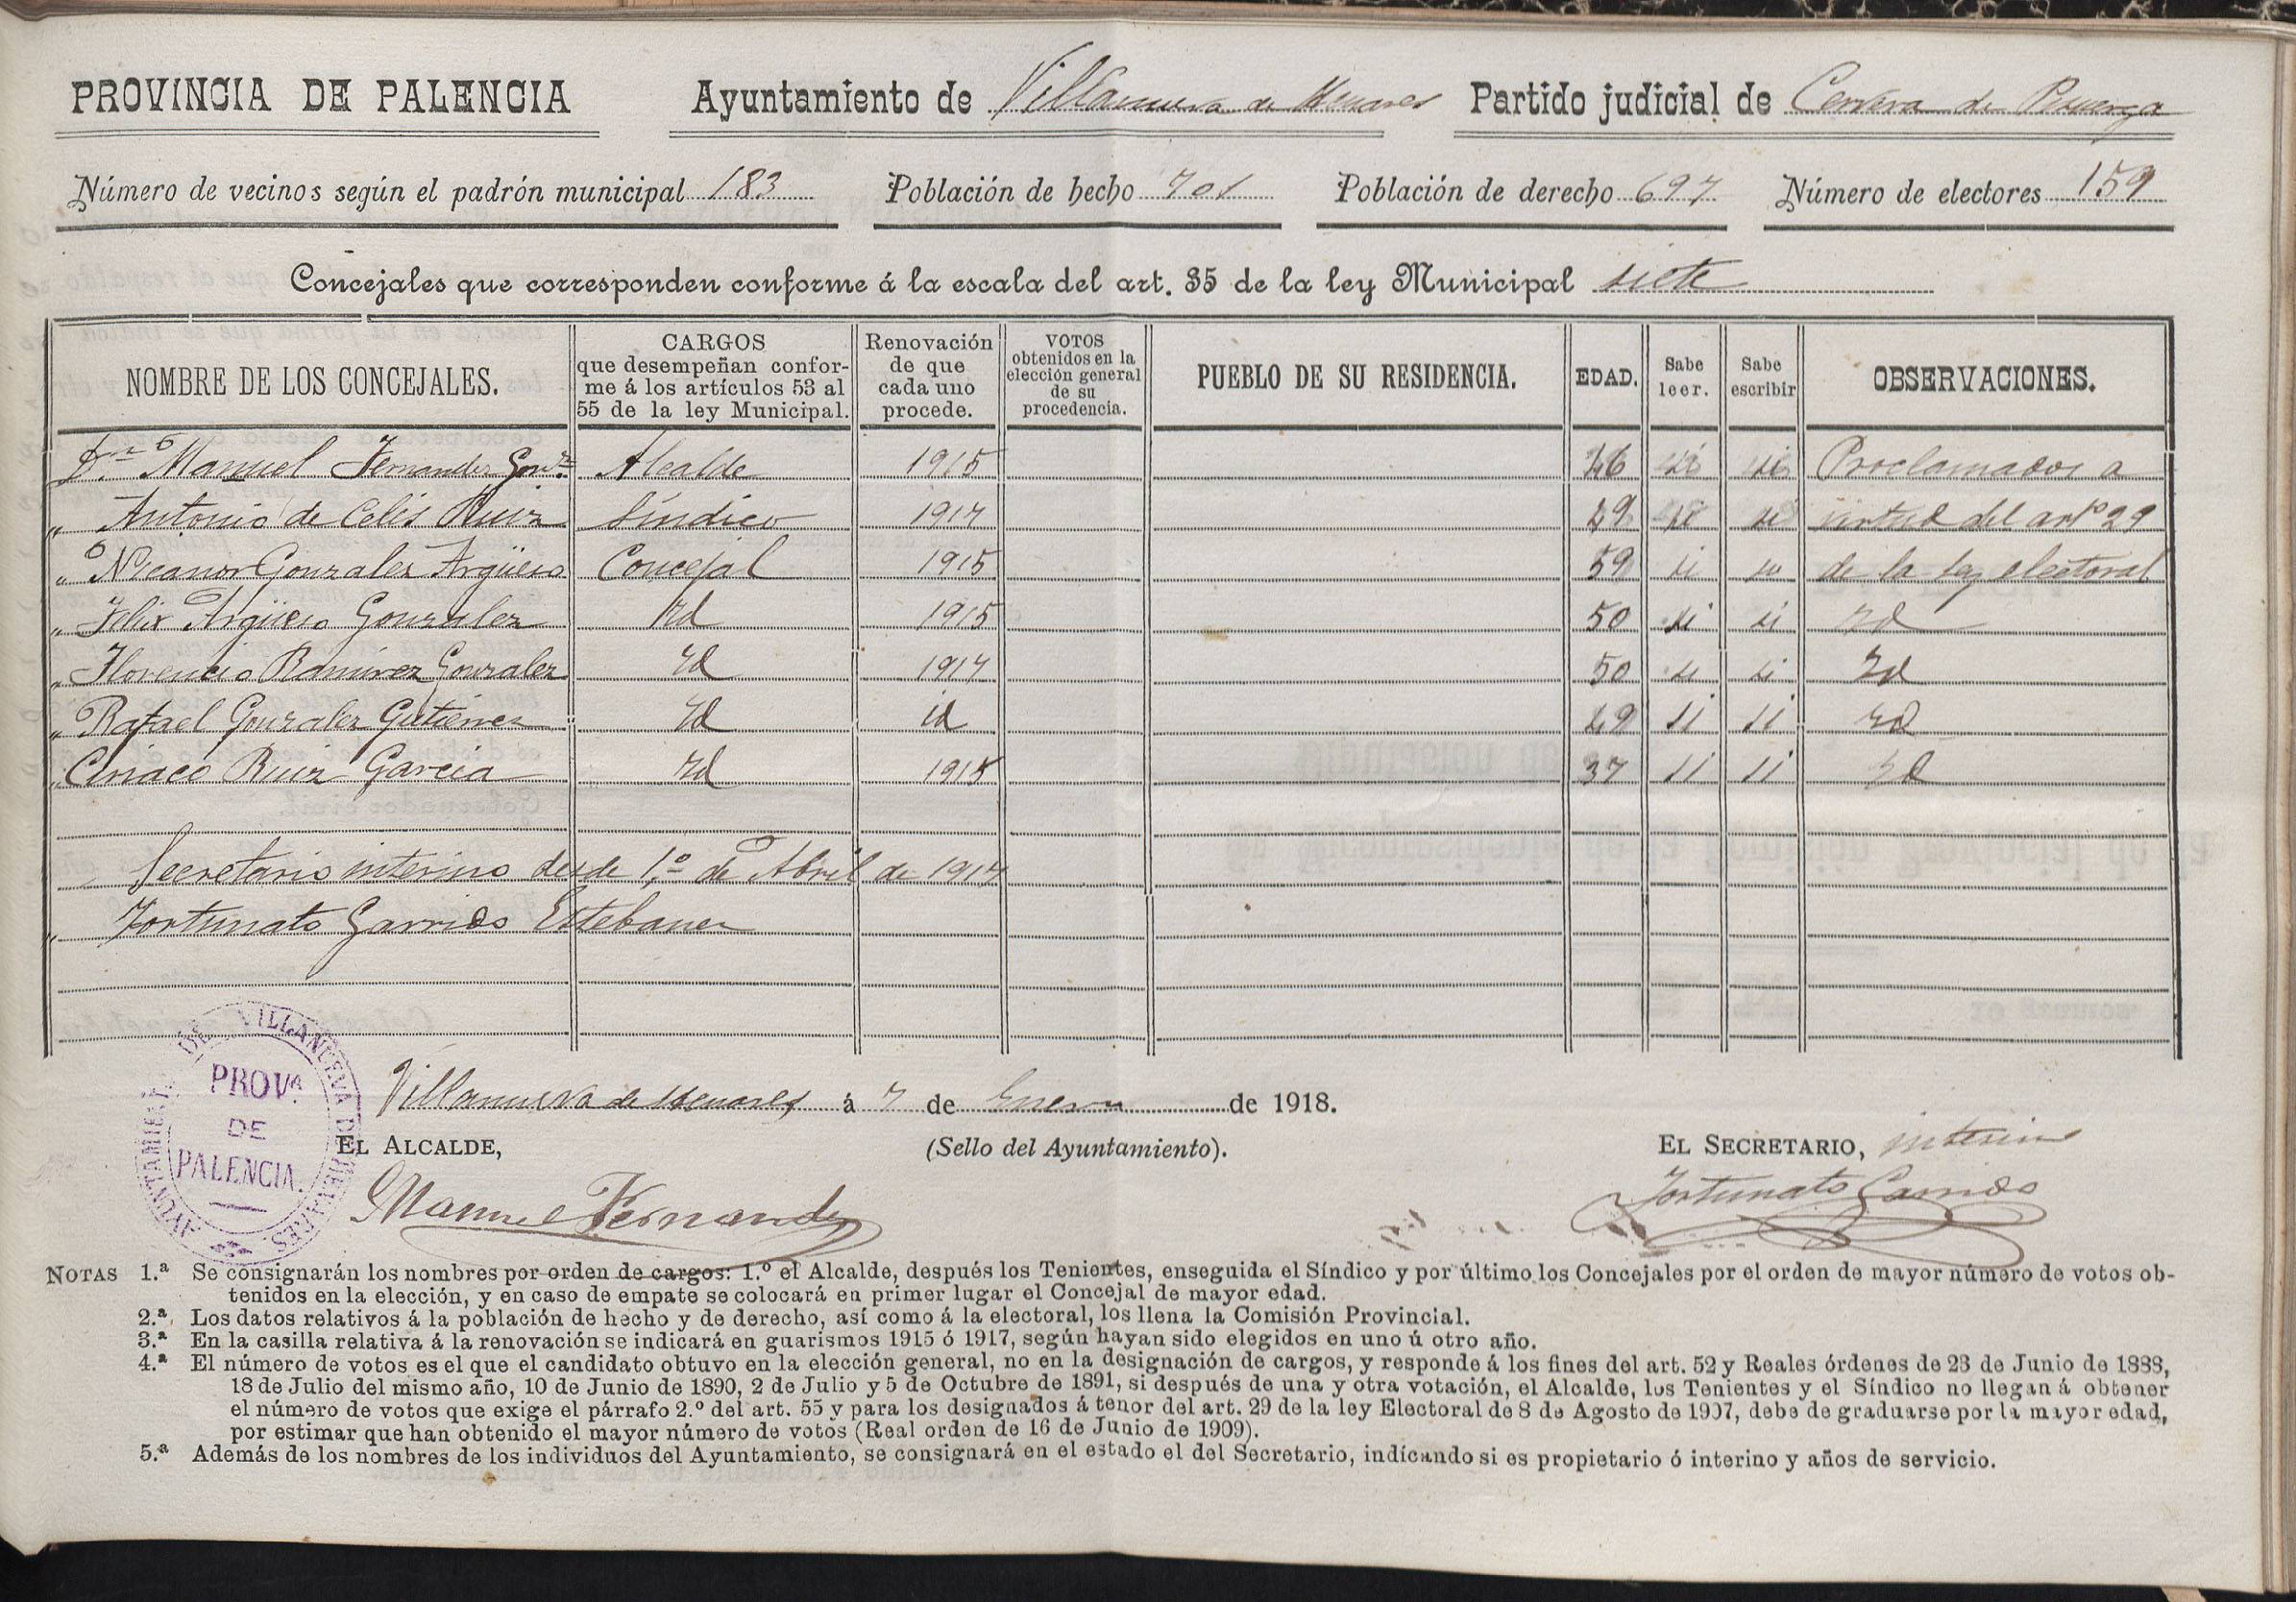 PROVINCIA DE PALENCIA Ayuntamiento de Villanueva de Henares Partido judicial de Cervera de Pisuerga
Número de vecinos según el padrón municipal 183 Población de hecho 701 Población de derecho 697 Número de electores 159
Concejales que corresponden conforme á la escala del art. 35 de la ley Municipal siete
NOMBRE DE LOS CONCEJALES. CARGOS que desempeñan conforme á los artículos 53 al 55 de la ley Municipal. Renovación de que cada uno procede. VOTOS obtenidos en la elección general de su procedencia. PUEBLO DE SU RESIDENCIA. EDAD. Sabe leer. Sabe escribir OBSERVACIONES.
Dn Manuel Fernandez Gonz Alcalde 1915 46 si si Proclamados a
„ Antonio de Celis Ruiz Síndico 1917 49 si si virtud del artº 29
„ Nicanor Gonzalez Argüeso Concejal 1915 59 si si de la ley electoral
„ Felix Argüeso Gonzalez Id 1915 50 si si Id
„ Florencio Ramirez Gonzalez Id 1917 50 si si Id
„ Rafael Gonzalez Gutierrez Id id 49 si si Id
„ Ciriaco Ruiz Garcia Id 1915 37 si si Id
Secretario interino desde 1.º de Abril de 1917
„ Fortunato Garrido Estebanez
AYUNTAMIENTO DE VILLANUEVA DE HENARES
PROVª DE PALENCIA.
Villanueva de Henares á 7 de Enero de 1918.
EL ALCALDE, (Sello del Ayuntamiento). EL SECRETARIO, interino
Manuel Fernandez Fortunato Garrido
NOTAS 1.ª Se consignarán los nombres por orden de cargos: 1.º el Alcalde, después los Tenientes, enseguida el Síndico y por último los Concejales por el orden de mayor número de votos ob-
tenidos en la elección, y en caso de empate se colocará en primer lugar el Concejal de mayor edad.
2.ª Los datos relativos á la población de hecho y de derecho, así como á la electoral, los llena la Comisión Provincial.
3.ª En la casilla relativa á la renovación se indicará en guarismos 1915 ó 1917, según hayan sido elegidos en uno ú otro año.
4.ª El número de votos es el que el candidato obtuvo en la elección general, no en la designación de cargos, y responde á los fines del art. 52 y Reales órdenes de 23 de Junio de 1888,
18 de Julio del mismo año, 10 de Junio de 1890, 2 de Julio y 5 de Octubre de 1891, si después de una y otra votación, el Alcalde, los Tenientes y el Síndico no llegan á obtener
el número de votos que exige el párrafo 2.º del art. 55 y para los designados á tenor del art. 29 de la ley Electoral de 8 de Agosto de 1907, debe de graduarse por la mayor edad,
por estimar que han obtenido el mayor número de votos (Real orden de 16 de Junio de 1909).
5.ª Además de los nombres de los individuos del Ayuntamiento, se consignará en el estado el del Secretario, indicando si es propietario ó interino y años de servicio.